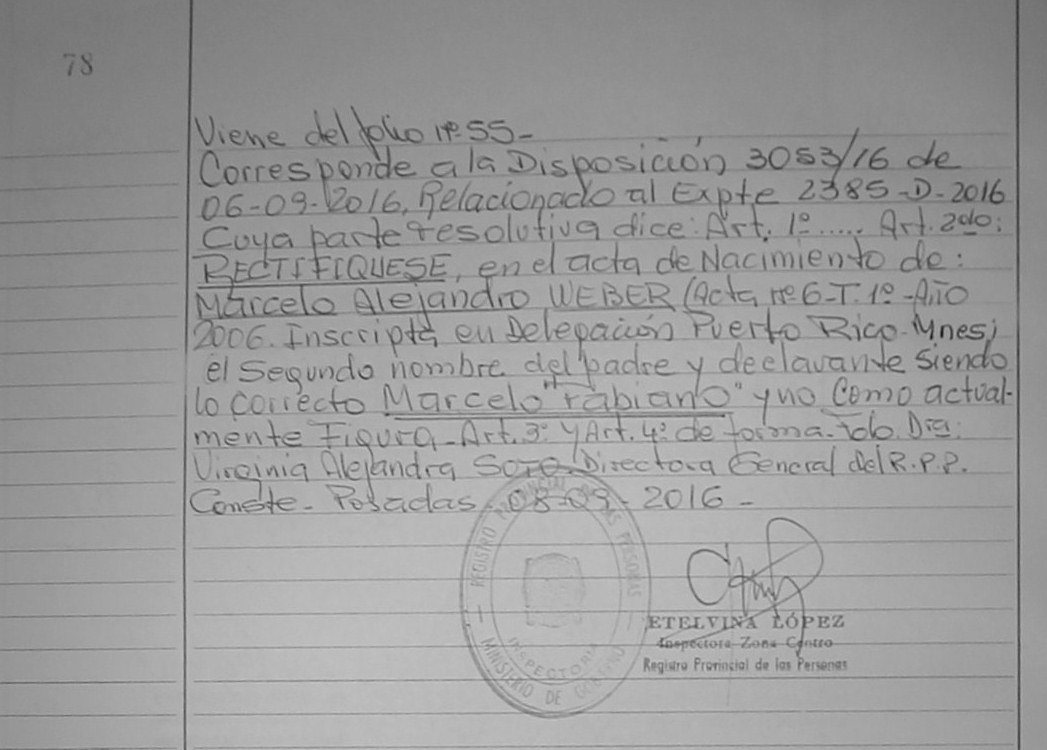 78
Viene del folio nº 55-
Corresponde a la Disposición 3053/16 de
06-09-2016, Relacionado al Expte 2385-D-2016
Cuya parte resolutiva dice: Art. 1º..... Art. 2do:
RECTIFIQUESE, en el acta de Nacimiento de:
Marcelo Alejandro WEBER (Acta nº 6-T. 1º-Año
2006. Inscripta en Delegación Puerto Rico-Mnes;
el Segundo nombre del padre y declarante siendo
lo correcto Marcelo "Fabiano" y no Como actual-
mente Figura-Art. 3º y Art. 4º de forma-Fdo. Dra.
Virginia Alejandra Soto-Directora General del R.P.P.
Conste- Posadas-08-09-2016-
REGISTRO PROVINCIAL DE LAS PERSONAS
INSPECTORIA
MINISTERIO DE GOBIERNO
ETELVINA LÓPEZ
Inspectora Zona Centro
Registro Provincial de las Personas